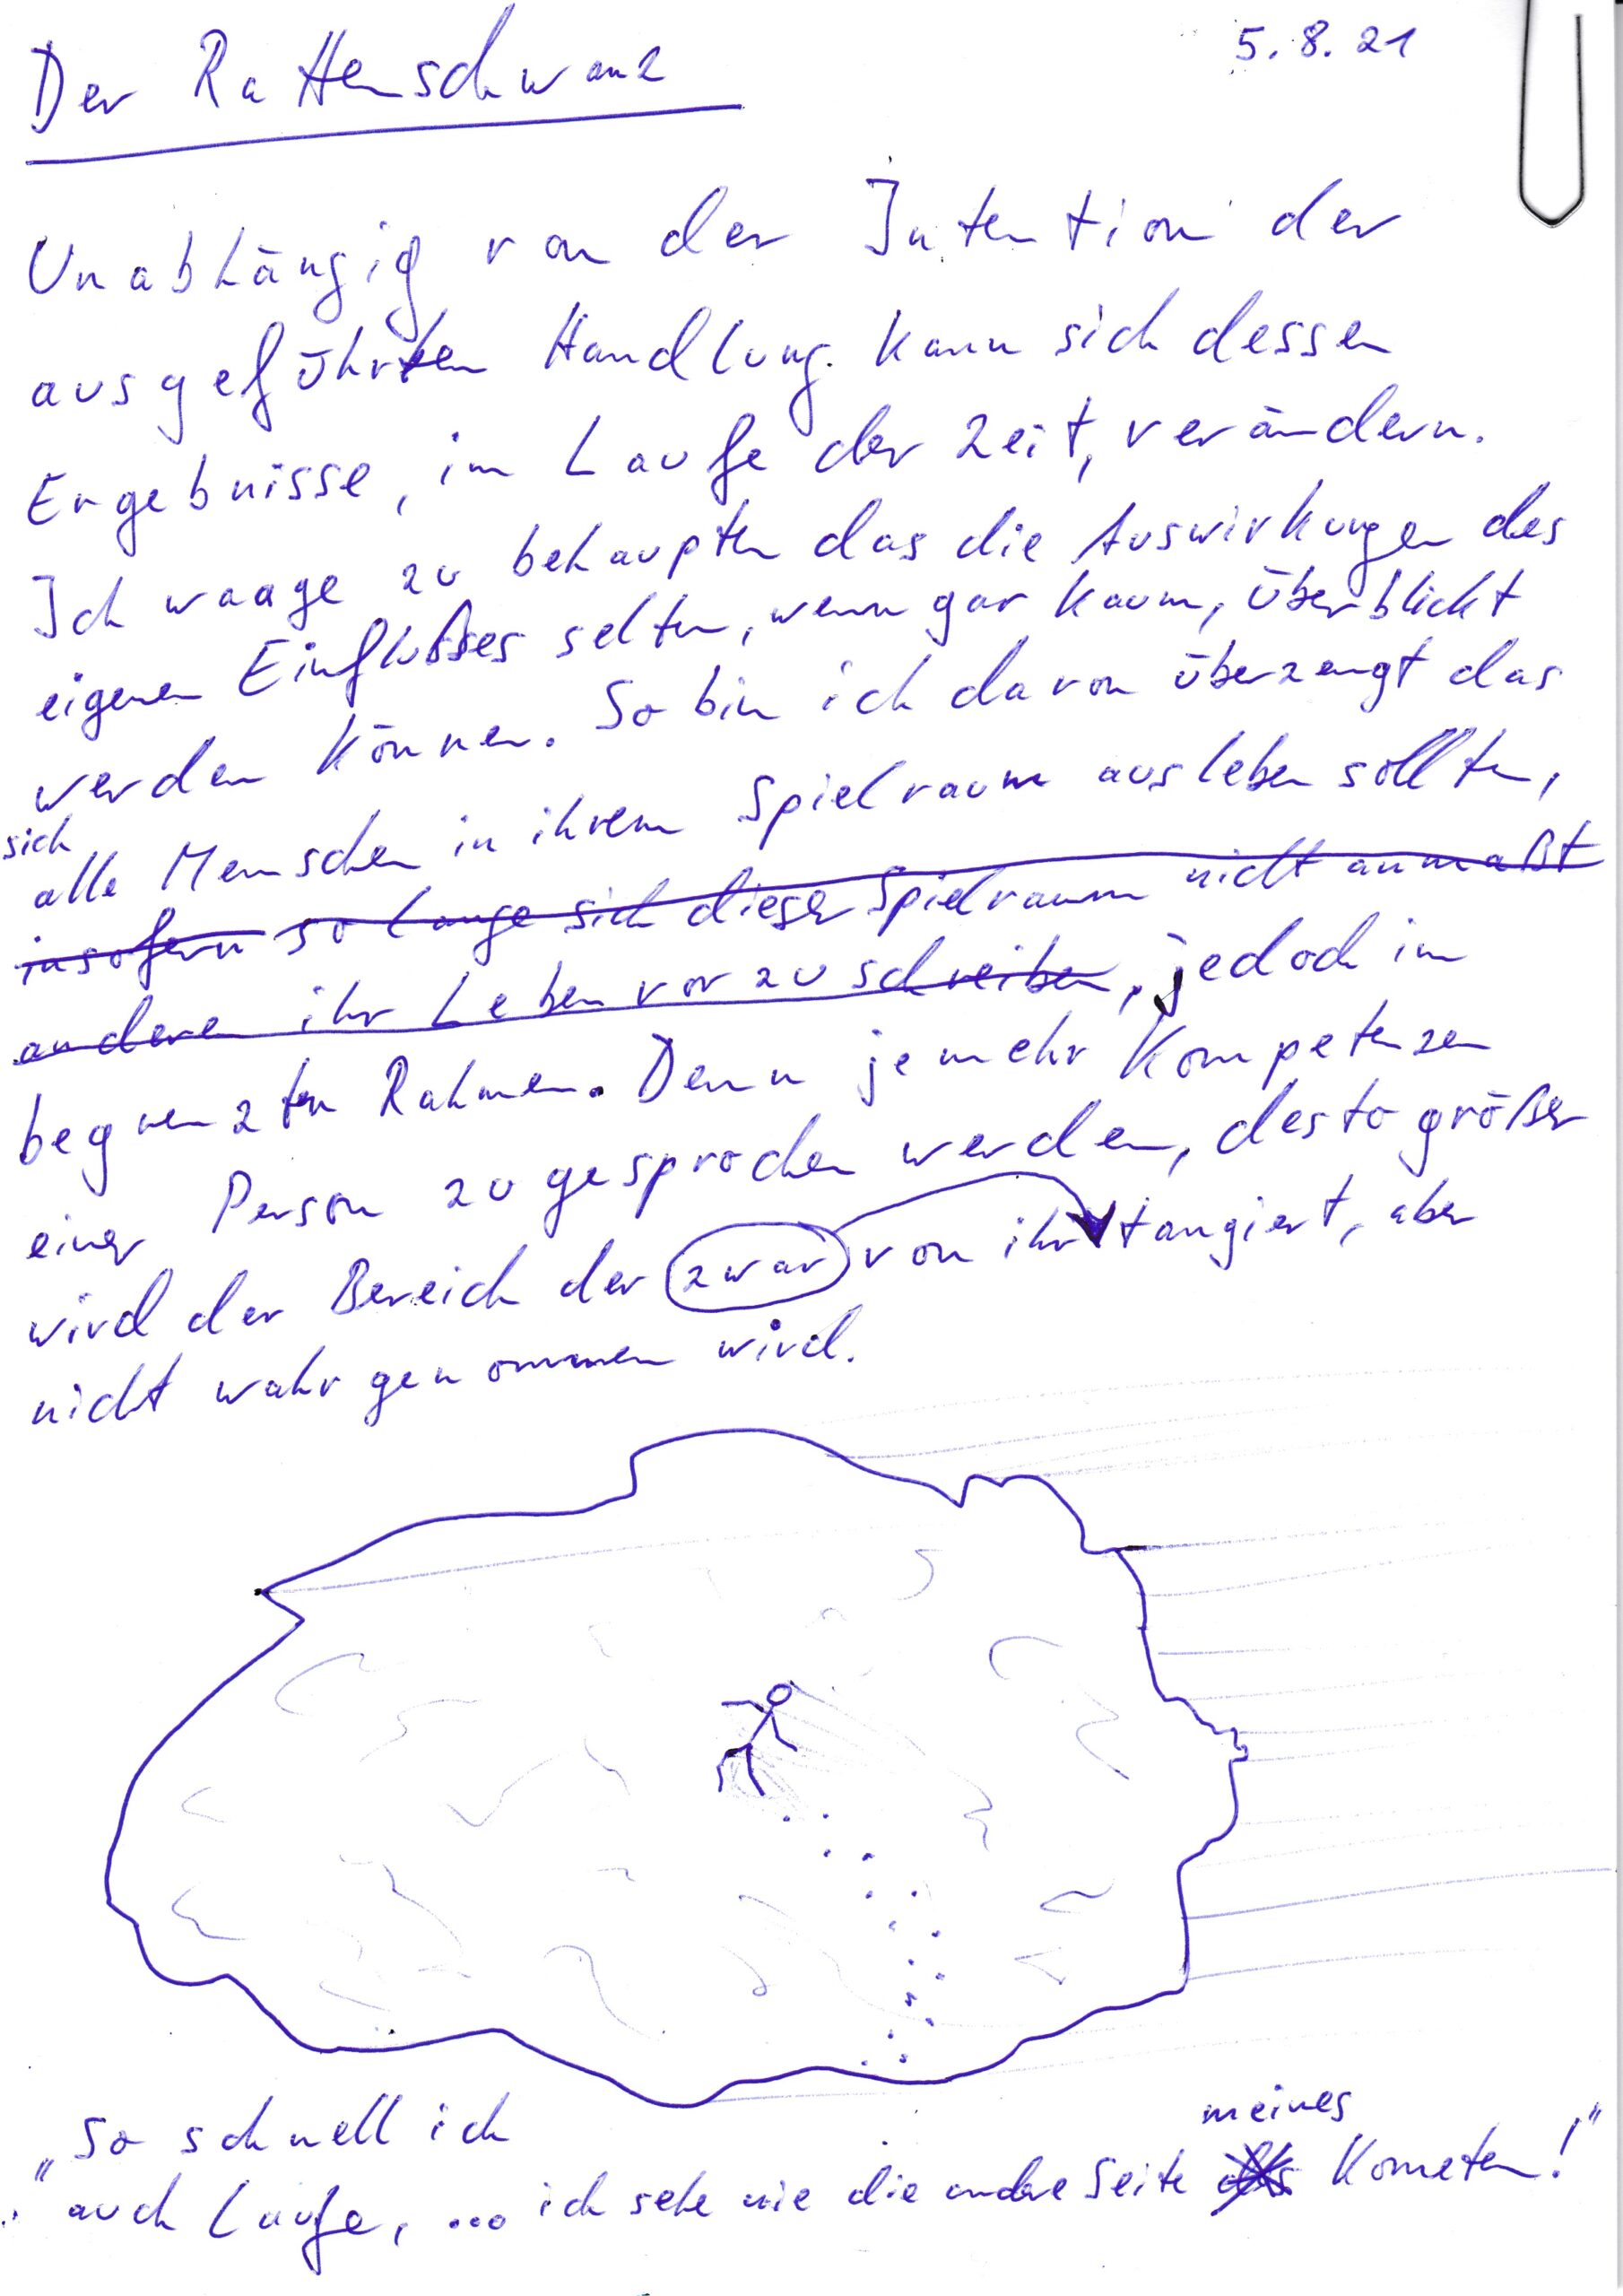 5.8.21
Der Rattenschwanz
Unabhängig von der Intention der
ausgeführten Handlung kann sich dessen
Ergebnisse, im Laufe der Zeit, verändern.
Ich waage zu behaupten das die Auswirkungen des
eigenen Einflußes selten, wenn gar kaum, überblickt
werden können. So bin ich davon überzeugt das
sich
alle Menschen in ihrem Spielraum ausleben sollten,
insofern so lange sich dieser Spielraum nicht anmaßt
anderen ihr Leben vor zu schreiben, jedoch im
begrenzten Rahmen. Denn je mehr Kompetenzen
einer Person zugesprochen werden, desto größer
wird der Bereich der zwar von ihr tangiert, aber
nicht wahrgenommen wird.
„So schnell ich
meines
auch laufe, ... ich sehe nie die andere Seite des Kometen!"